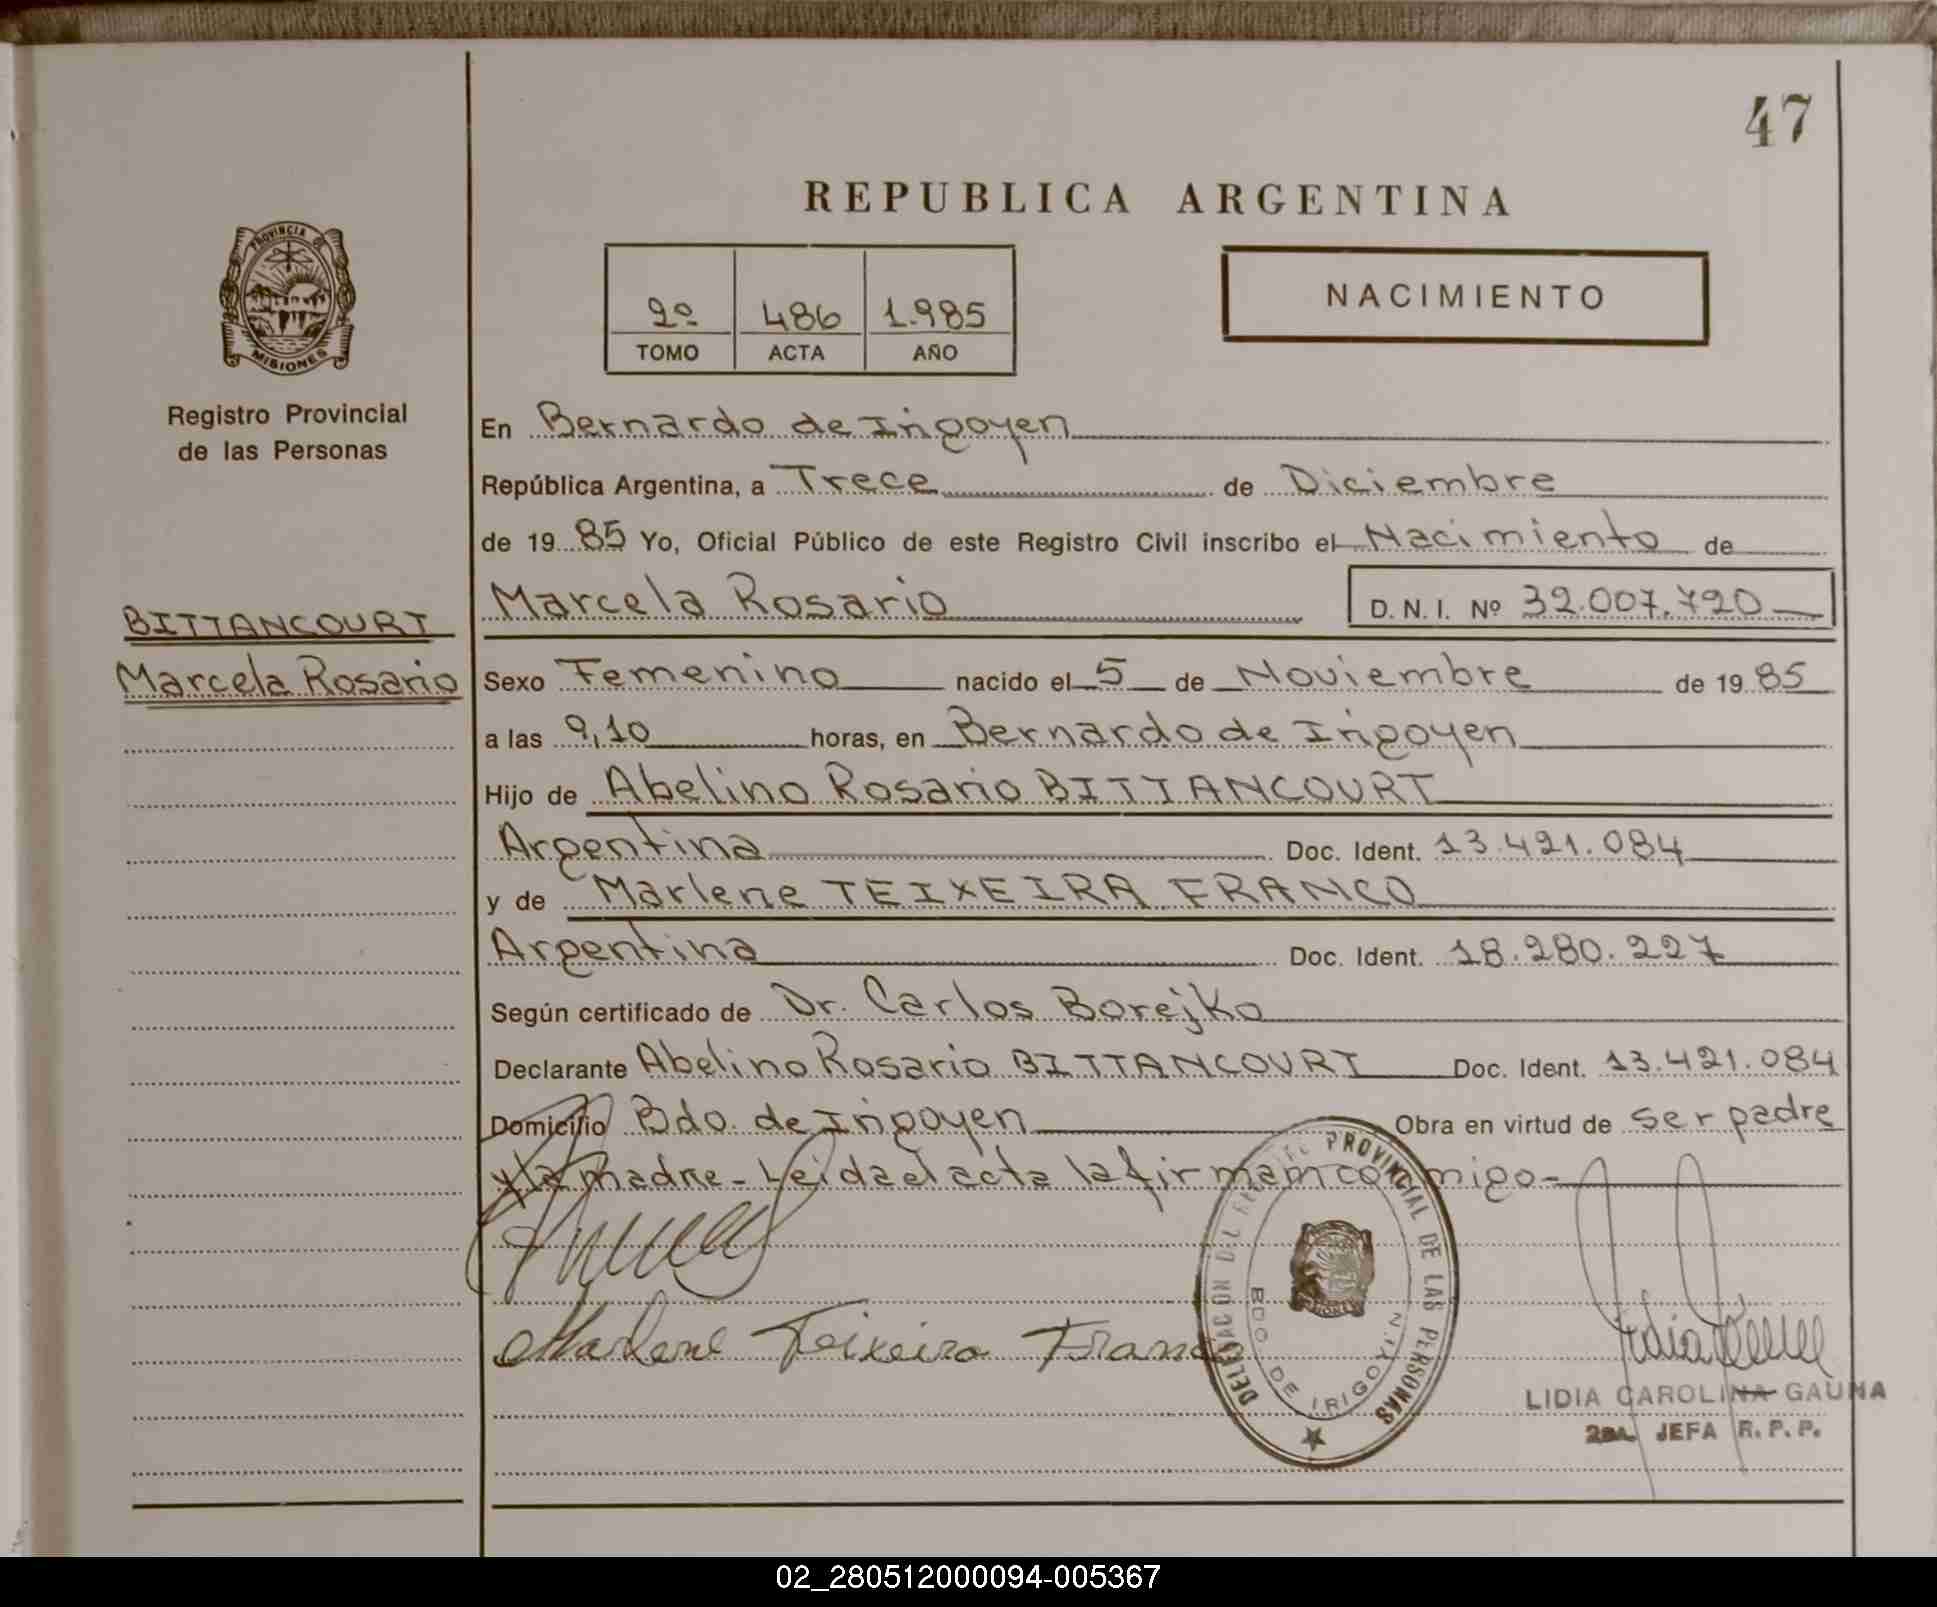 47
REPUBLICA ARGENTINA
PROVINCIA DE
MISIONES
Registro Provincial
de las Personas
2º 486 1.985
TOMO ACTA AÑO
NACIMIENTO
En Bernardo de Irigoyen
República Argentina, a Trece de Diciembre
de 19 85 Yo, Oficial Público de este Registro Civil inscribo el Nacimiento de
Marcela Rosario D. N. I. Nº 32.007.720
BITTANCOURT
Marcela Rosario
Sexo Femenino nacido el 5 de Noviembre de 19 85
a las 9,10 horas, en Bernardo de Irigoyen
Hijo de Abelino Rosario BITTANCOURT
Argentina Doc. Ident. 13.421.084
y de Marlene TEIXEIRA FRANCO
Argentina Doc. Ident. 18.280.227
Según certificado de Dr. Carlos Borejko
Declarante Abelino Rosario BITTANCOURT Doc. Ident. 13.421.084
Domicilio Bdo. de Irigoyen Obra en virtud de ser padre
y la madre - Leida el acta la firman conmigo -
Marlene Teixeira Franco
DELEGACION DEL REGISTRO PROVINCIAL DE LAS PERSONAS
BDO. DE IRIGOYEN
LIDIA CAROLINA GAUNA
2DA. JEFA R. P. P.
02_280512000094-005367